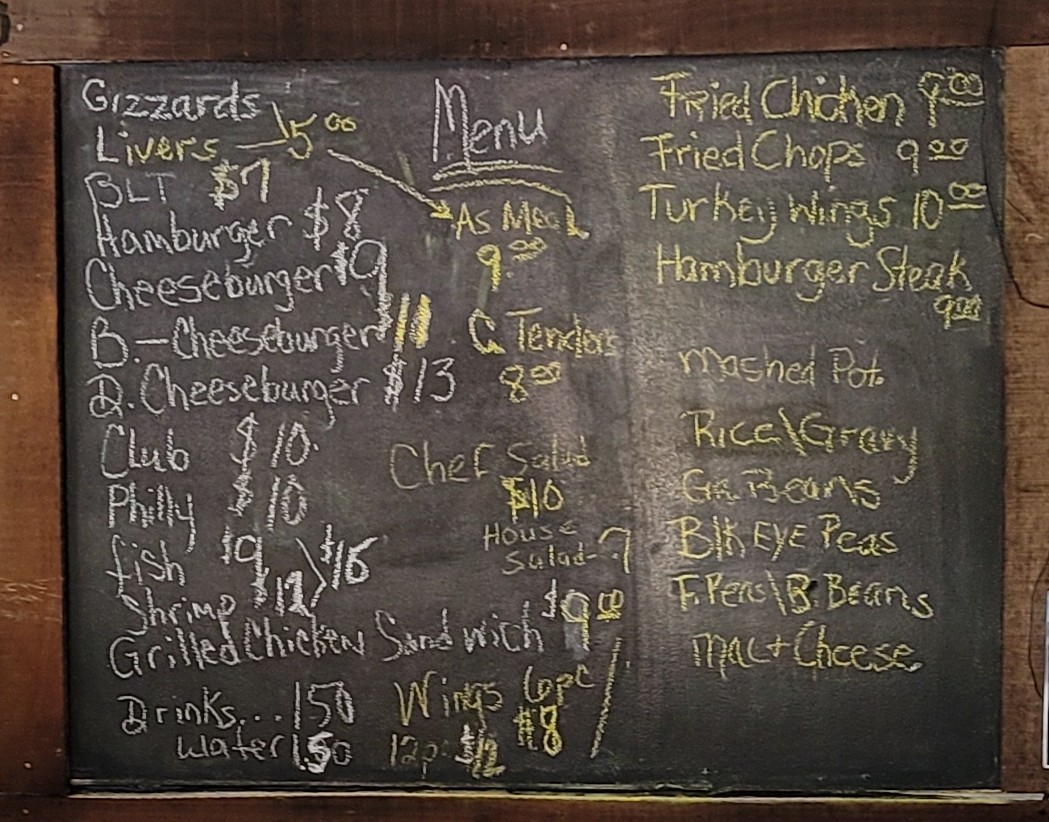 Menu
Gizzards
Livers 5.00
BLT $7
Hamburger $8
Cheeseburger $9
B.-Cheeseburger $11
D. Cheeseburger $13
Club $10
Philly $10
fish $9
Shrimp $12 $16
Grilled Chicken Sandwich $9.00
Drinks... 150
Water 1.50
As Meal
9.00
C Tenders
8.00
Chef Salad
$10
House
Salad-7
Wings 6pc
$8
12pc $12
Fried Chicken 9.00
Fried Chops 9.00
Turkey Wings 10.00
Hamburger Steak
9.00
Mashed Pot.
Rice\Gravy
Gr. Beans
Blk Eye Peas
F. Peas\B. Beans
Mac+Cheese